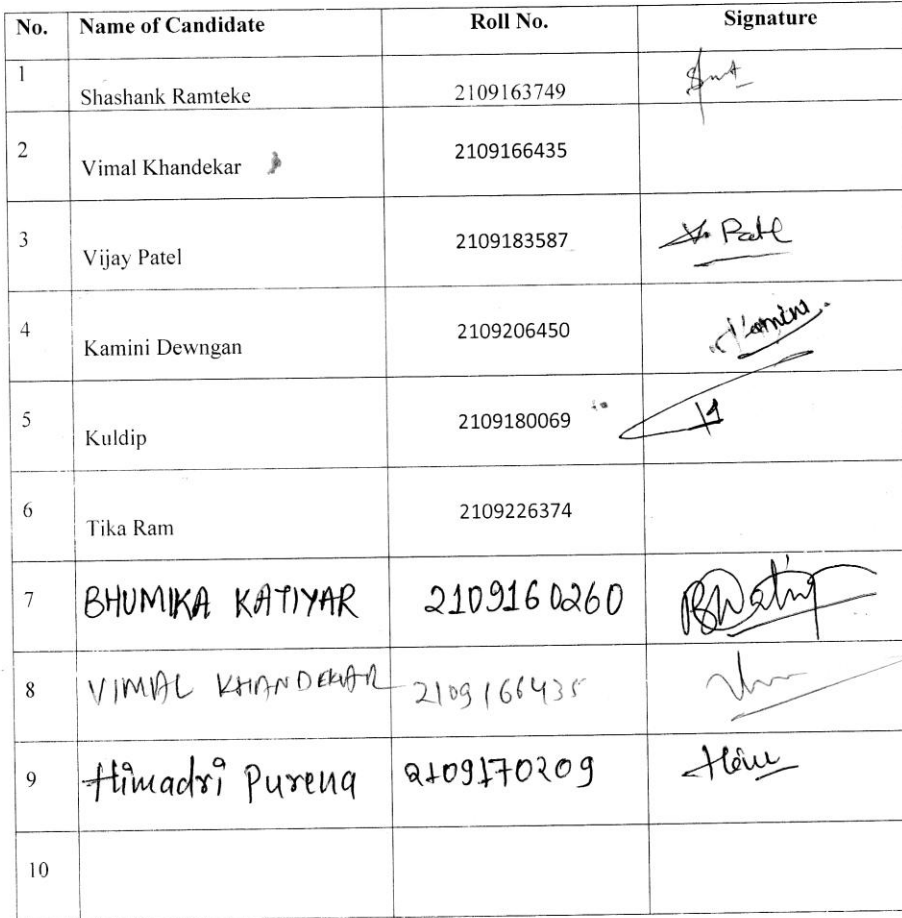 No. Name of Candidate Roll No. Signature
1 Shashank Ramteke 2109163749
2 Vimal Khandekar 2109166435
3 Vijay Patel 2109183587 V. Patel
4 Kamini Dewngan 2109206450 Kamini
5 Kuldip 2109180069
6 Tika Ram 2109226374
7 BHUMIKA KATIYAR 2109160260
8 VIMAL KHANDEKAR 2109166435
9 Himadri Purena 2109170209
10